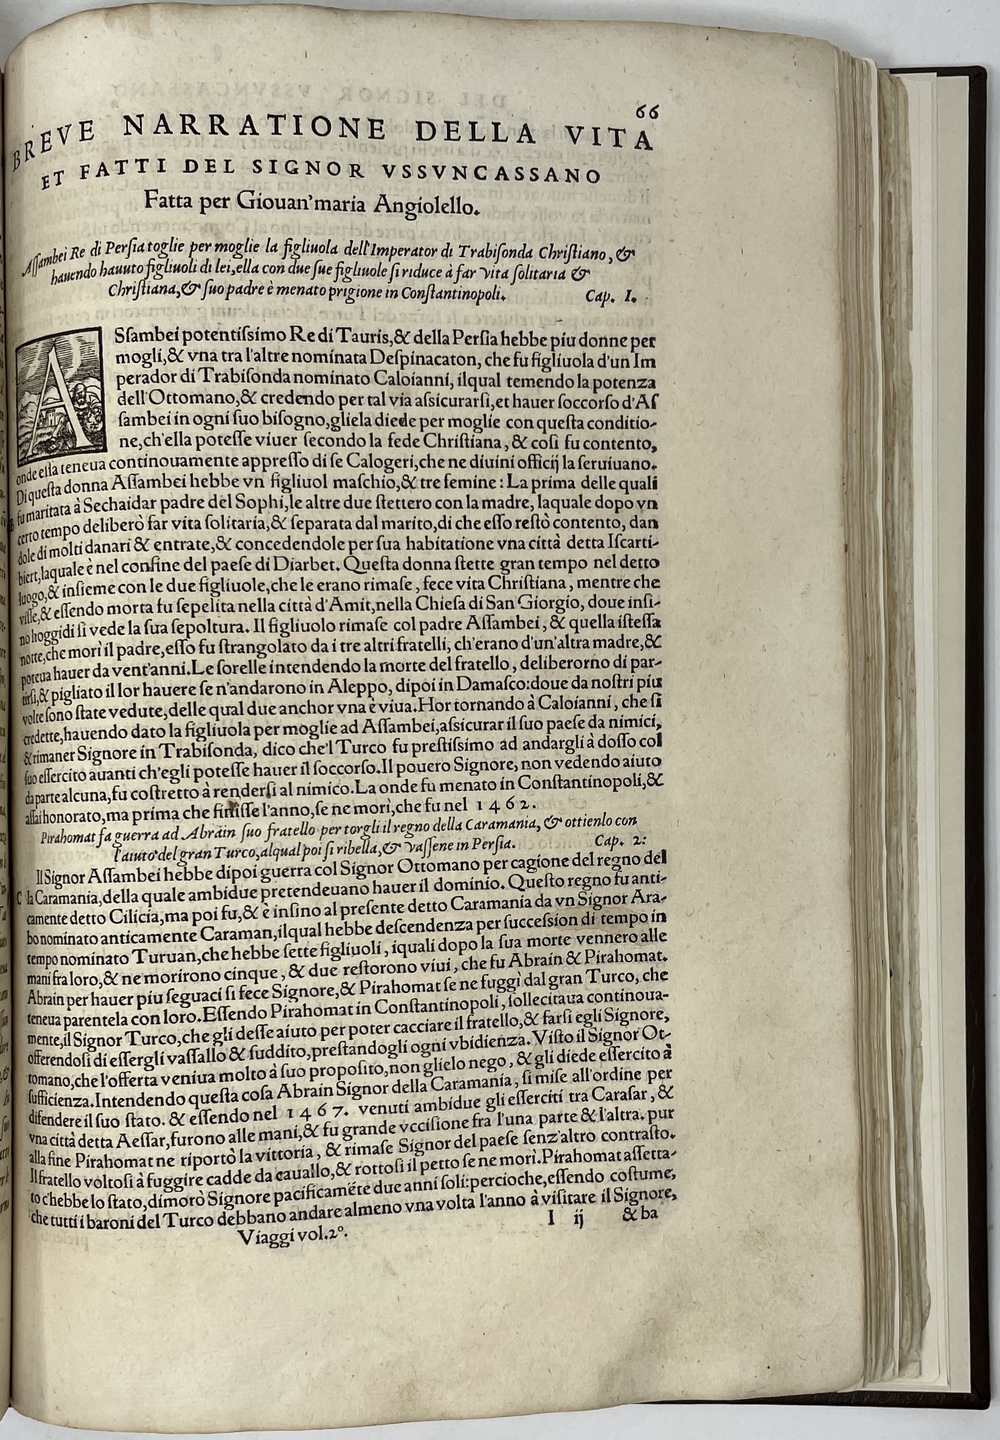 66
BREVE NARRATIONE DELLA VITA
ET FATTI DEL SIGNOR VSSVNCASSANO
Fatta per Giouan'maria Angiolello.
Aſſambei Re di Perſia toglie per moglie la figliuola dell'Imperator di Trabiſonda Chriſtiano, &
hauendo hauuto figliuoli di lei,ella con due ſue figliuole ſi riduce à far vita ſolitaria &
Chriſtiana,& ſuo padre è menato prigione in Conſtantinopoli. Cap. I.
ASſambei potentiſsimo Re di Tauris,& della Perſia hebbe piu donne per
mogli,& vna tra l'altre nominata Deſpinacaton, che fu figliuola d'un Im
perador di Trabiſonda nominato Caloianni, ilqual temendo la potenza
dell'Ottomano,& credendo per tal via aſsicurarſi,et hauer ſoccorſo d'Aſ
ſambei in ogni ſuo biſogno,gliela diede per moglie con queſta conditio-
ne,ch'ella poteſſe viuer ſecondo la fede Chriſtiana, & coſi fu contento,
onde ella teneua continouamente appreſſo di ſe Calogeri,che ne diuini officij la ſeruiuano.
Di queſta donna Aſſambei hebbe vn figliuol maſchio,& tre femine: La prima delle quali
fu maritata à Sechaidar padre del Sophi,le altre due ſtettero con la madre, laquale dopo vn
certo tempo deliberò far vita ſolitaria,& ſeparata dal marito,di che eſſo reſtò contento, dan
dole di molti danari & entrate,& concedendole per ſua habitatione vna città detta Iſcarti-
biert,laquale è nel confine del paeſe di Diarbet. Queſta donna ſtette gran tempo nel detto
luogo,& inſieme con le due figliuole,che le erano rimaſe, fece vita Chriſtiana, mentre che
viſſe,& eſſendo morta fu ſepelita nella città d'Amit,nella Chieſa di San Giorgio, doue inſi-
no hoggidi ſi vede la ſua ſepoltura. Il figliuolo rimaſe col padre Aſſambei, & quella iſteſſa
notte,che morì il padre,eſſo fu ſtrangolato da i tre altri fratelli, ch'erano d'un'altra madre,&
poteua hauer da vent'anni.Le ſorelle intendendo la morte del fratello, deliberorno di par-
tirſi,& pigliato il lor hauere ſe n'andarono in Aleppo, dipoi in Damaſco:doue da noſtri piu
volte ſono ſtate vedute,delle qual due anchor vna è viua.Hor tornando à Caloianni, che ſi
credette,hauendo dato la figliuola per moglie ad Aſſambei,aſsicurar il ſuo paeſe da nimici,
& rimaner Signore in Trabiſonda, dico che'l Turco fu preſtiſsimo ad andargli à doſſo col
ſuo eſſercito auanti ch'egli poteſſe hauer il ſoccorſo.Il pouero Signore, non vedendo aiuto
da parte alcuna,fu coſtretto à renderſi al nimico.La onde fu menato in Conſtantinopoli,&
aſſai honorato,ma prima che finiſſe l'anno,ſe ne morì,che fu nel 1462.
Pirahomat fa guerra ad Abrain ſuo fratello per torgli il regno della Caramania, & ottienlo con
l'aiuto del gran Turco,alqual poi ſi ribella,& vaſſene in Perſia. Cap. 2:
Il Signor Aſſambei hebbe dipoi guerra col Signor Ottomano per cagione del regno del
C la Caramania,della quale ambidue pretendeuano hauer il dominio. Queſto regno fu anti-
camente detto Cilicia,ma poi fu,& è inſino al preſente detto Caramania da vn Signor Ara-
bo nominato anticamente Caraman,ilqual hebbe deſcendenza per ſucceſsion di tempo in
tempo nominato Turuan,che hebbe ſette figliuoli, iquali dopo la ſua morte vennero alle
mani fra loro,& ne morirono cinque, & due reſtorono viui, che fu Abrain & Pirahomat.
Abrain per hauer piu ſeguaci ſi fece Signore,& Pirahomat ſe ne fuggì dal gran Turco, che
teneua parentela con loro.Eſſendo Pirahomat in Conſtantinopoli, ſollecitaua continoua-
mente,il Signor Turco,che gli deſſe aiuto per poter cacciare il fratello,& farſi egli Signore,
offerendoſi di eſſergli vaſſallo & ſuddito,preſtandogli ogni vbidienza.Viſto il Signor Ot-
tomano,che l'offerta veniua molto à ſuo propoſito,non glielo nego, & gli diede eſſercito à
ſufficienza. Intendendo queſta coſa Abrain Signor della Caramania, ſi miſe all'ordine per
difendere il ſuo ſtato. & eſſendo nel 1467. venuti ambidue gli eſſerciti tra Caraſar, &
vna città detta Aeſſar,furono alle mani,& fu grande vcciſione fra l'una parte & l'altra. pur
alla fine Pirahomat ne riportò la vittoria, & rimaſe Signor del paeſe ſenz'altro contraſto.
Il fratello voltoſi à fuggire cadde da cauallo,& rottoſi il petto ſe ne morì.Pirahomat aſſetta-
to c'hebbe lo ſtato,dimorò Signore pacificamẽte due anni ſoli:percioche,eſſendo coſtume,
che tutti i baroni del Turco debbano andare almeno vna volta l'anno à viſitare il Signore,
Viaggi vol.2°. I ij & ba